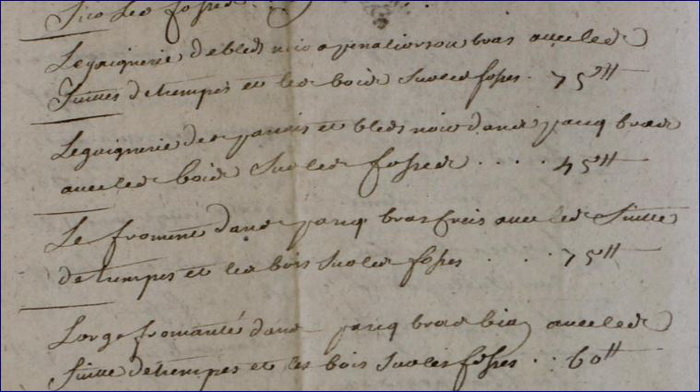 Sur Les fosses
Le gaignerie de bled noir a penaliorsou bras avec les
Suittes detrempes et les bois Sur les fosses . 75ᵗᵗ
Le gaignerie des panais et bled noir dans parcq bras
avec les bois Sur les fosses . . . . 45ᵗᵗ
Le froment dans parcq bras freis avec les Suitte
detrempes et les bois Sur les fosses . . . 75ᵗᵗ
L'orge fromanté dans parcq bras bian avec les
Suitte detrempes et les bois Sur les fosses . . 60ᵗᵗ